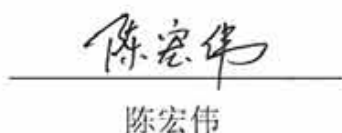 陈宏伟
陈宏伟